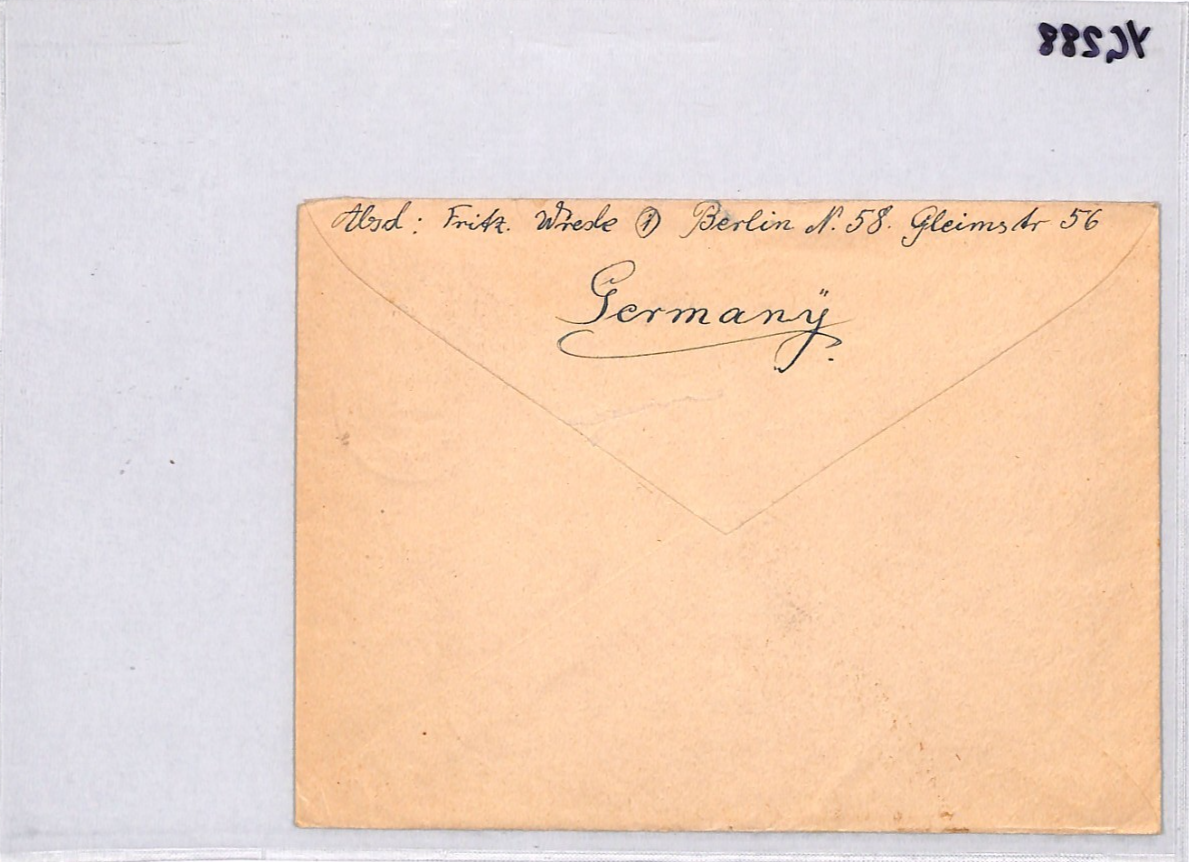 YG288
Absd: Fritz. Wrede (1) Berlin N. 58. Gleimstr 56
Germanÿ.